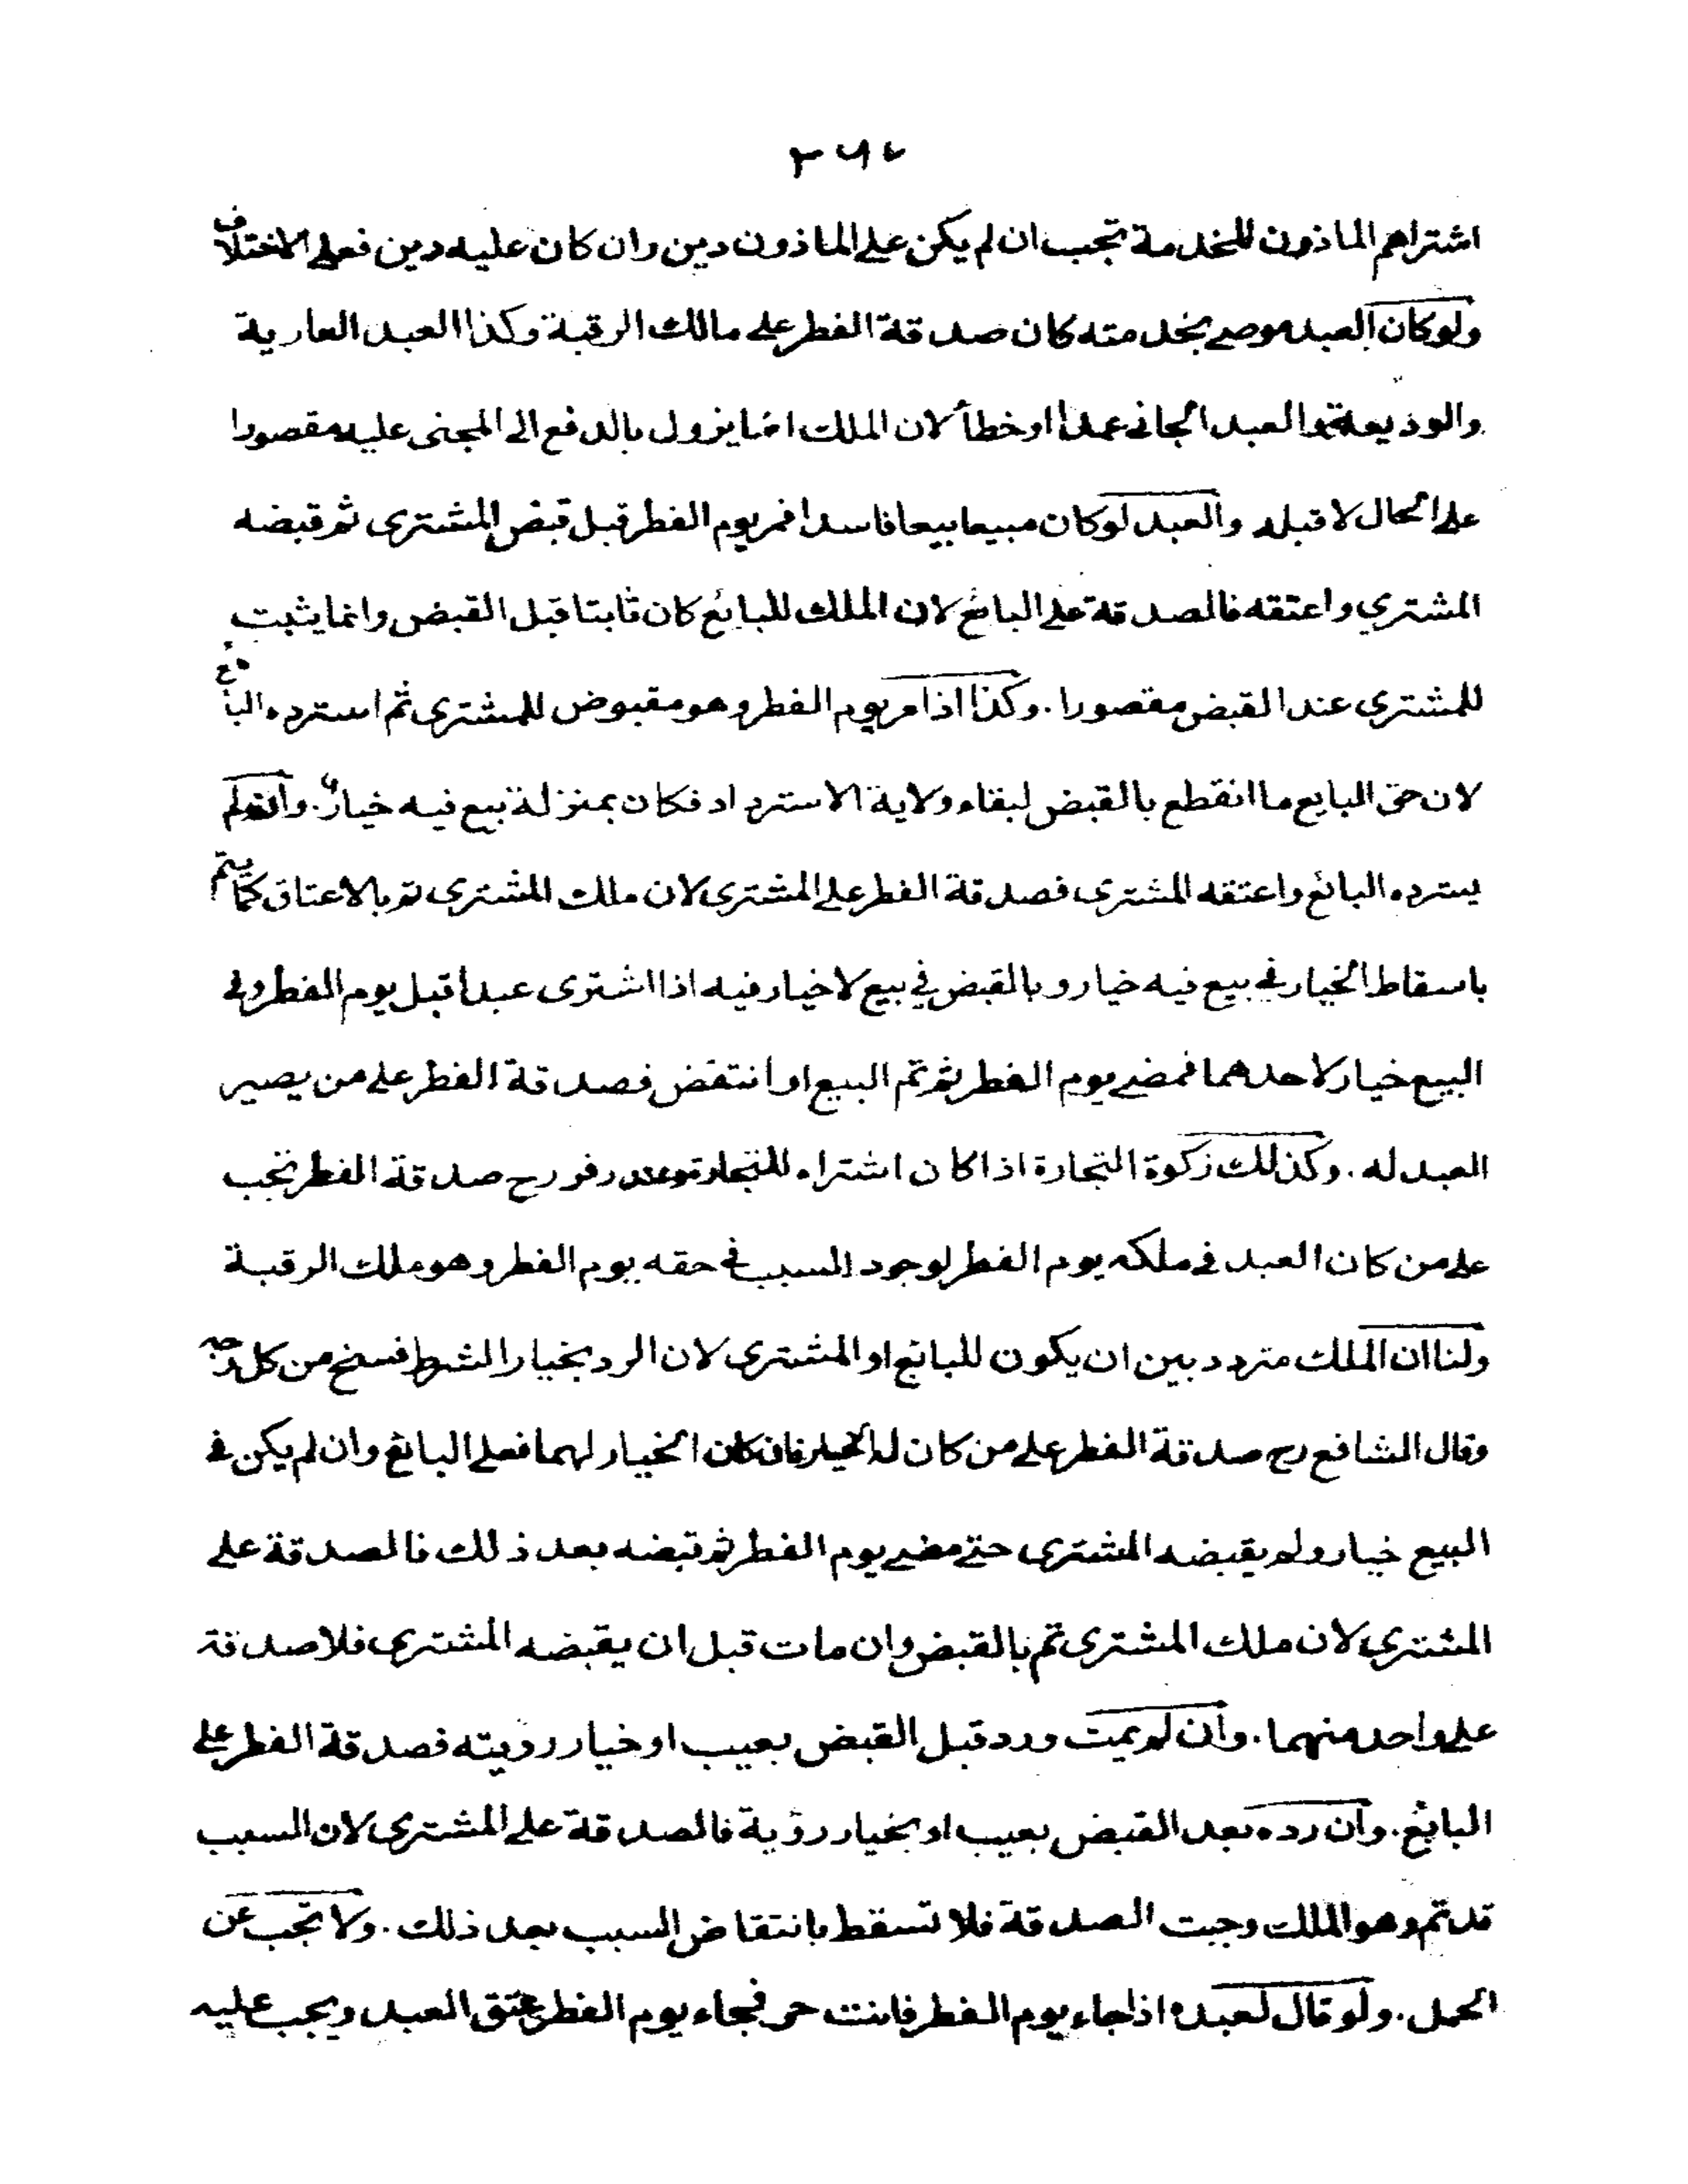 ٢٦٧
اشتراهم الماذون للخدمة تجب ان لم يكن على الماذون دين وان كان عليه دين فعلى الاختلاف
ولو كان العبد موصى بخدمته كان صدقة الفطر على مالك الرقبة وكذا العبد العارية
والوديعة والعبد الجانى عمدا او خطأ لان الملك انما يزول بالدفع الى المجنى عليه مقصورا
على الحال لا قبله والعبد لو كان مبيعا بيعا فاسدا فمر يوم الفطر قبل قبض المشترى ثم قبضه
المشتري واعتقه فالصدقة على البائع لان الملك للبائع كان ثابتا قبل القبض وانما يثبت
للمشترى عند القبض مقصورا . وكذا اذا مر يوم الفطر وهو مقبوض للمشترى ثم استرده البائع
لان حق البايع ما انقطع بالقبض لبقاء ولاية الاسترداد فكان بمنزلة بيع فيه خيار . وان لم
يسترده البائع واعتقه المشترى فصدقة الفطر على المشترى لان ملك المشترى تم بالاعتاق كما يتم
باسقاط الخيار في بيع فيه خيار وبالقبض في بيع لا خيار فيه اذا اشترى عبدا قبل يوم الفطر وفى
البيع خيار لاحدهما فمضى يوم الفطر ثم تم البيع او انتقض فصدقة الفطر على من يصير
العبد له . وكذلك زكوة التجارة اذا كان اشتراه للتجارة وعند زفر رح صدقة الفطر تجب
على من كان العبد في ملكه يوم الفطر لوجود السبب في حقه يوم الفطر وهو ملك الرقبة
ولنا ان الملك متردد بين ان يكون للبائع او المشترى لان الرد بخيار الشرط فسخ من كل وجه
وقال الشافع رح صدقة الفطر على من كان له الخيار فان كان الخيار لهما فعلى البائع وان لم يكن في
البيع خيار ولم يقبضه المشترى حتى مضى يوم الفطر ثم قبضه بعد ذلك فالصدقة على
المشتري لان ملك المشترى تم بالقبض وان مات قبل ان يقبضه المشترى فلا صدقة
على واحد منهما . وان لم يمت ورد قبل القبض بعيب او خيار رؤيته فصدقة الفطر على
البائع . وان رده بعد القبض بعيب او بخيار رؤية فالصدقة على المشترى لان السبب
قد تم وهو الملك وجبت الصدقة فلا تسقط بانتقاض السبب بعد ذلك . ولا تجب عن
الحمل . ولو قال لعبده اذا جاء يوم الفطر فانت حر فجاء يوم الفطر عتق العبد ويجب عليه